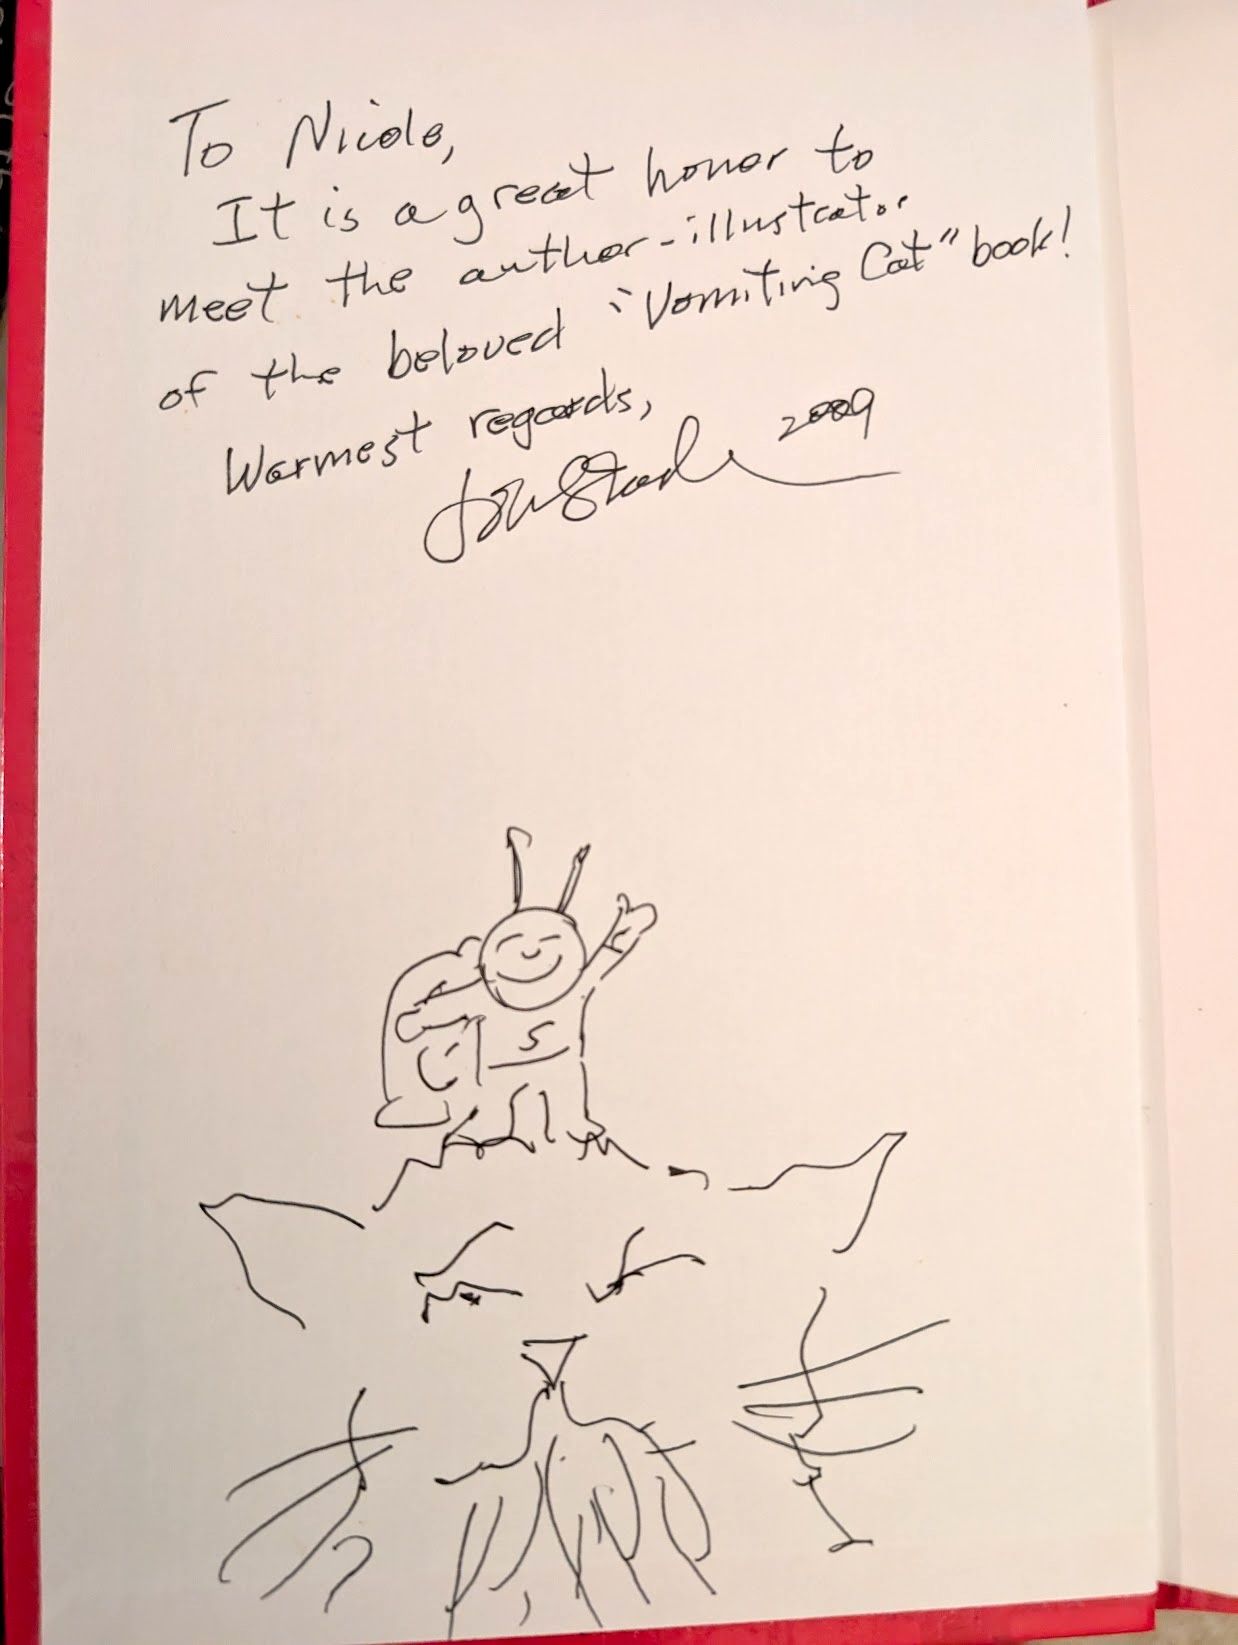 To Nicole,
It is a great honor to
meet the author-illustrator
of the beloved "Vomiting Cat" book!
Warmest regards,
2009
S